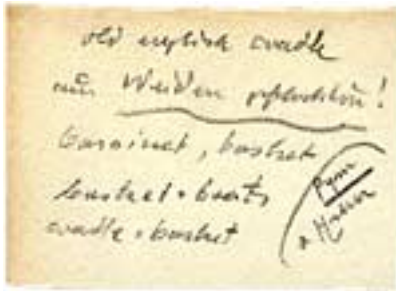 old english cradle
aus Weiden geflochten!
basinet, basket
basket-boats
cradle-basket